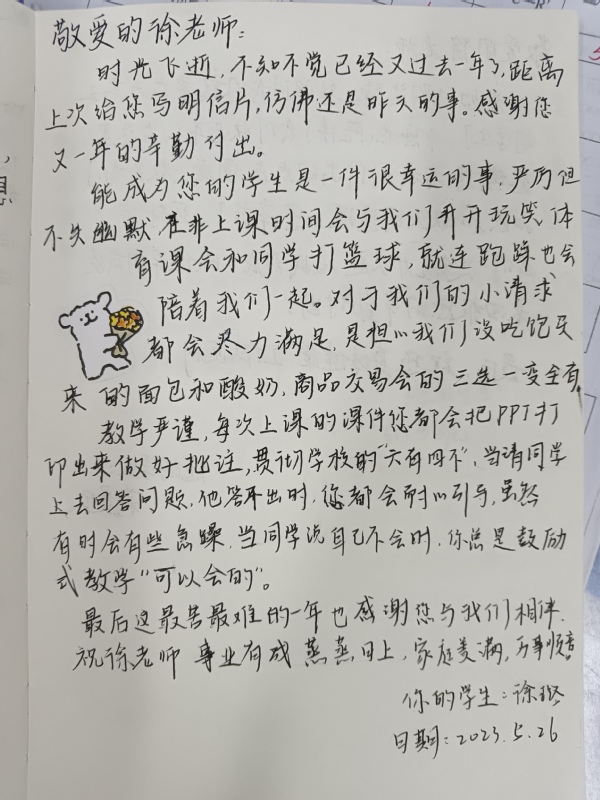 敬爱的徐老师：
时光飞逝，不知不觉已经又过去一年了，距离
上次给您写明信片，仿佛还是昨天的事。感谢您
又一年的辛勤付出。
能成为您的学生是一件很幸运的事，严厉但
不失幽默，在非上课时间会与我们开开玩笑，体
育课会和同学打篮球，就连跑踩也会
陪着我们一起。对于我们的小请求
都会尽力满足，是担心我们没吃饱买
来的面包和酸奶，商品交易会的三选一变全有。
教学严谨，每次上课的课件您都会把PPT打
印出来做好批注，贯彻学校的“六有四不”，当请同学
上去回答问题，他答不出时，您都会耐心引导，虽然
有时会有些急躁，当同学说自己不会时，你总是鼓励
式教学“可以会的”。
最后这最苦最难的一年也感谢您与我们相伴，
祝徐老师 事业有成 蒸蒸日上，家庭美满，万事顺意
你的学生：徐
日期：2023.5.26